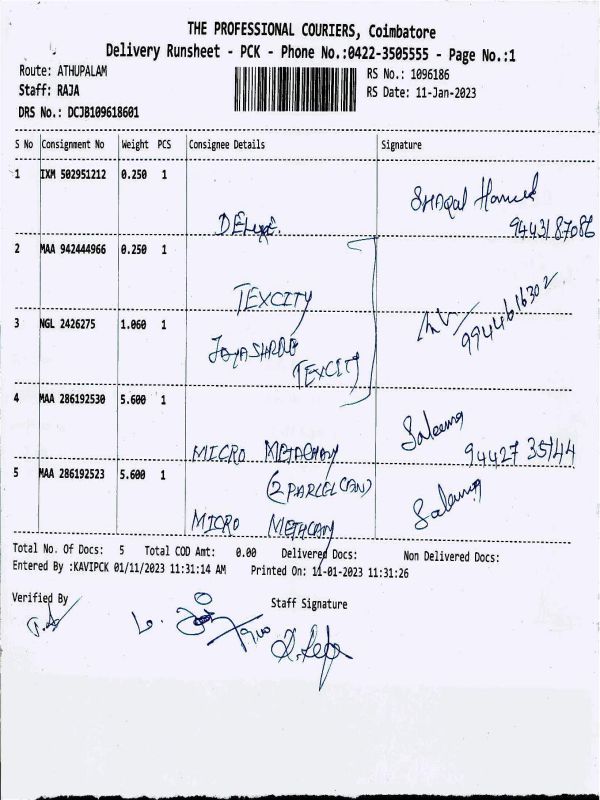 THE PROFESSIONAL COURIERS, Coimbatore
Delivery Runsheet - PCK - Phone No.:0422-3505555 - Page No.:1
Route: ATHUPALAM
RS No.: 1096186
Staff: RAJA
RS Date: 11-Jan-2023
DRS No.: DCJB109618601
S No Consignment No Weight PCS Consignee Details Signature
1 IXM 502951212 0.250 1
9443187086
2 MAA 942444966 0.250 1
TEXCITY
9944616302
3 NGL 2426275 1.060 1
TEXCITY
4 MAA 286192530 5.600 1
MICRO
94427 35144
5 MAA 286192523 5.600 1
(2 PARCEL CAN)
MICRO
Total No. Of Docs: 5 Total COD Amt: 0.00 Delivered Docs: Non Delivered Docs:
Entered By :KAVIPCK 01/11/2023 11:31:14 AM Printed On: 11-01-2023 11:31:26
Verified By
Staff Signature